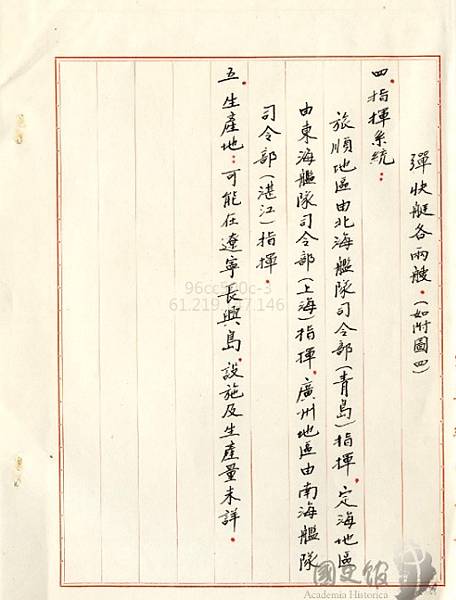 彈快艇各兩艘。(如附圖四)
四、指揮系統:
旅順地區由北海艦隊司令部(青島)指揮,定海地區
由東海艦隊司令部(上海)指揮,廣州地區由南海艦隊
司令部(湛江)指揮。
五、生產地:可能在遼寧長興島,設施及生產量未詳。
96cc560c-3
61.219.167.146
國史館
Academia Historica